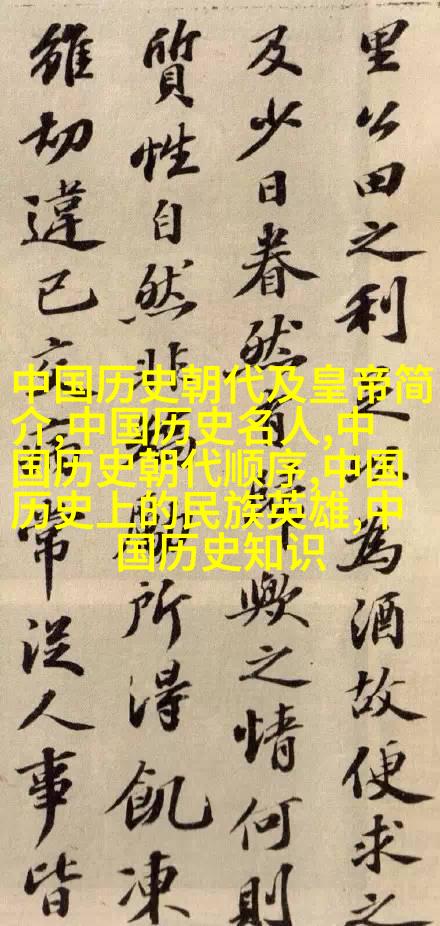 里公田之利足以為酒故便求之
及少日眷然有歸歟之情何則
質性自然非矯勵所得飢凍
雖切違己交病常從人事皆
中国历史朝代及皇帝简
介,中国历史名人,中
国历史朝代顺序,中国
历史上的民族英雄,中
国历史知识